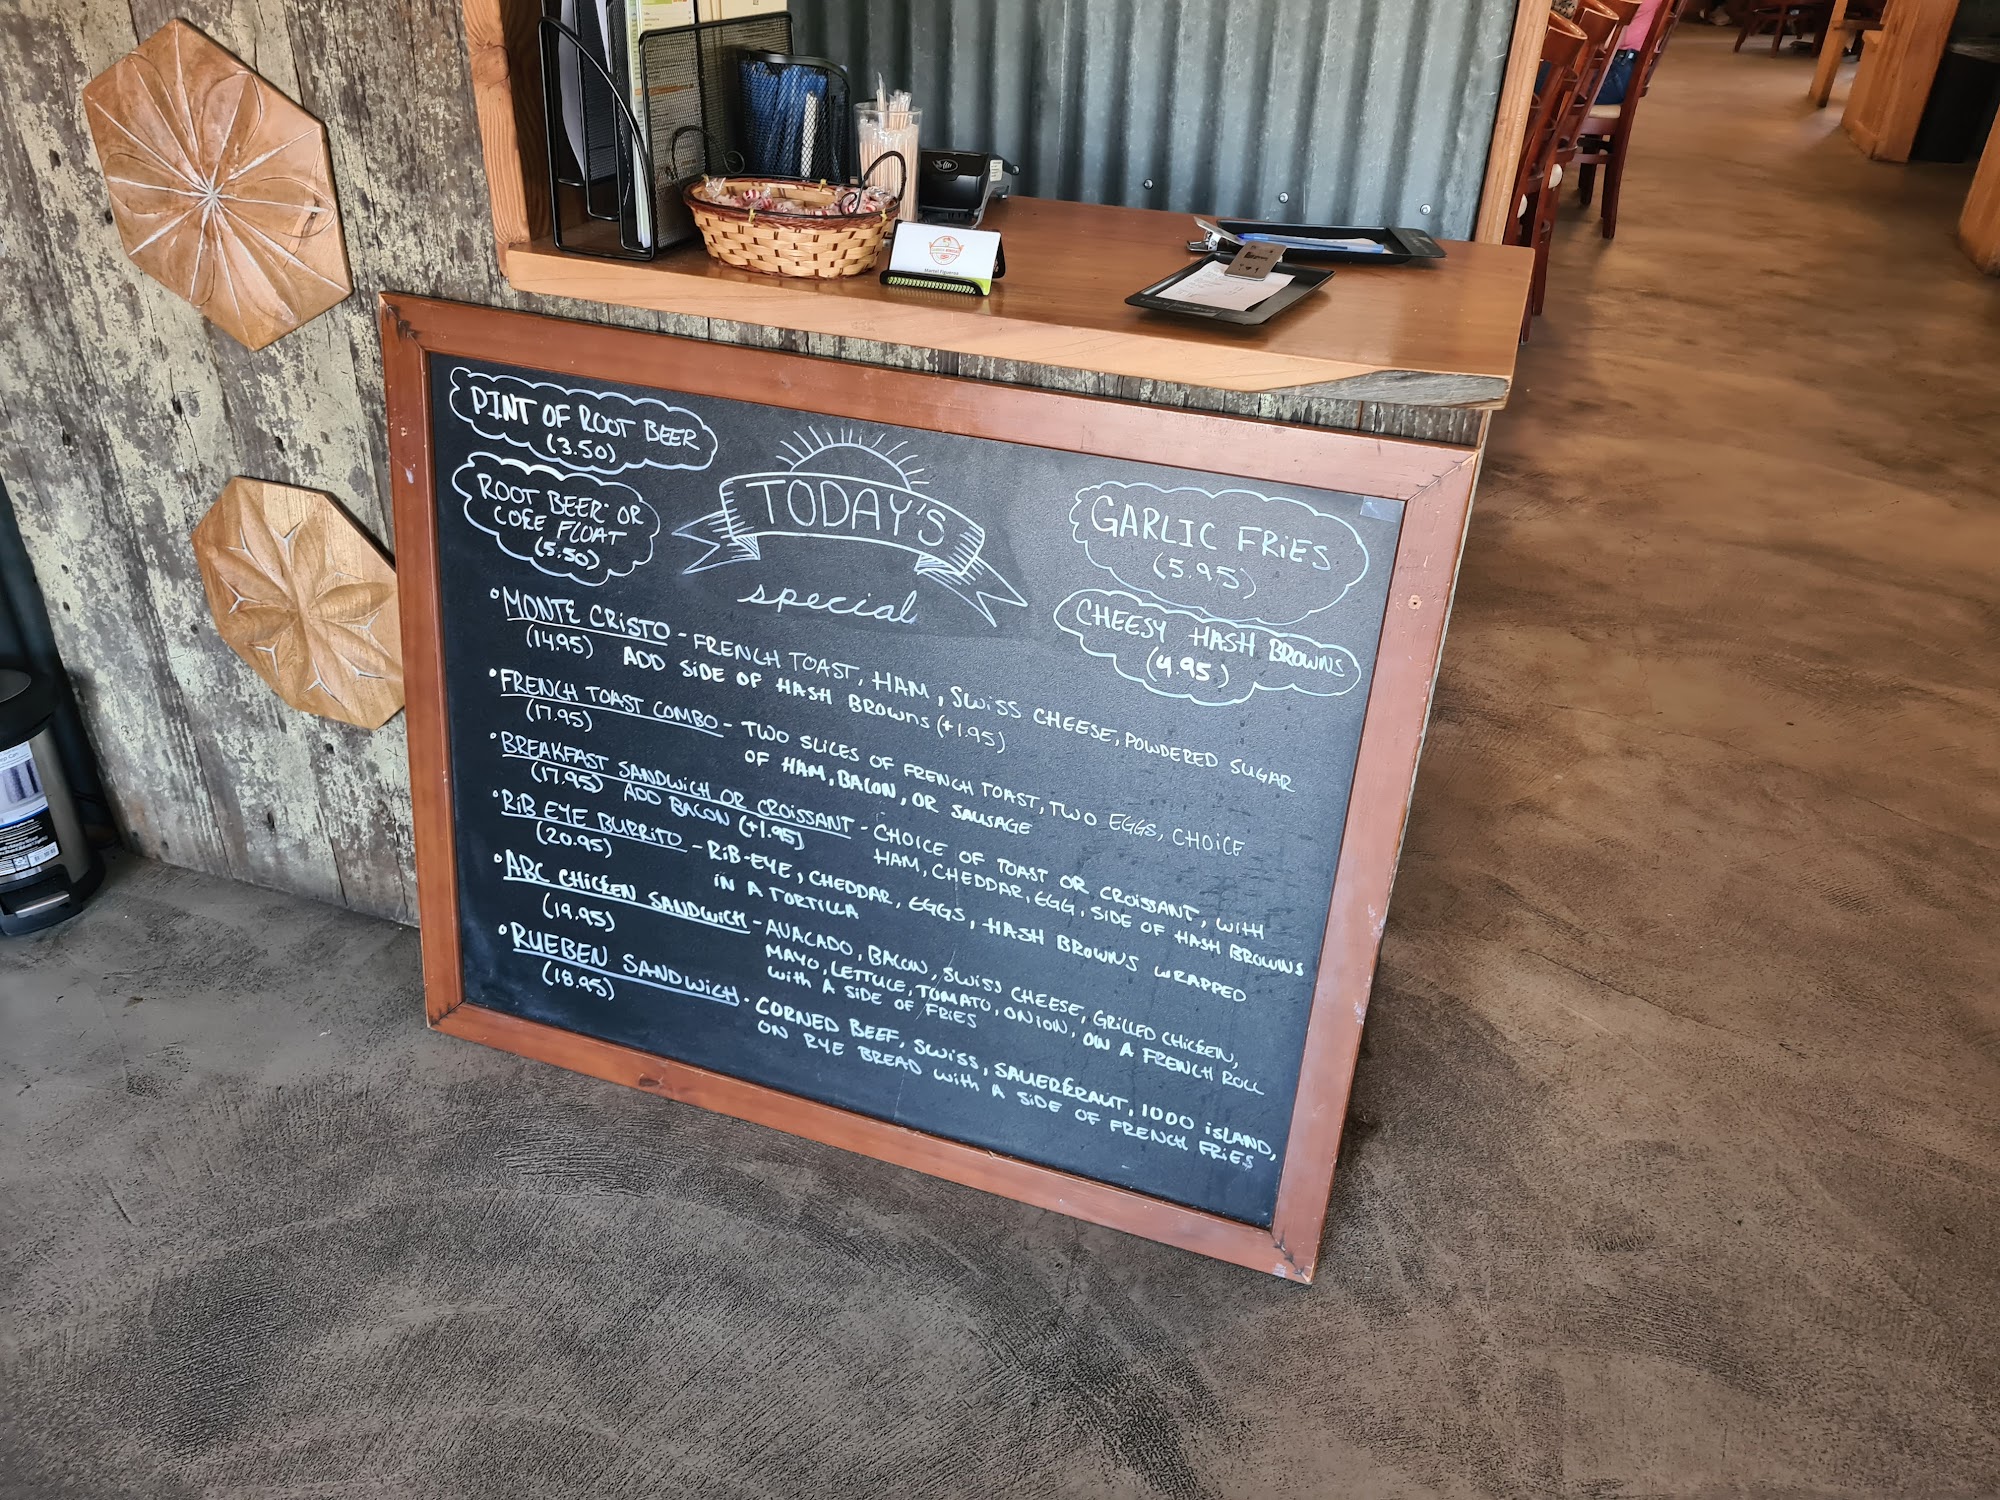 PINT OF ROOT BEER
(3.50)
ROOT BEER OR
COKE FLOAT
(5.50)
TODAY'S
special
GARLIC FRIES
(5.95)
CHEESY HASH BROWNS
(4.95)
•MONTE CRISTO - FRENCH TOAST, HAM, SWISS CHEESE, POWDERED SUGAR
(14.95) ADD SIDE OF HASH BROWNS (+1.95)
•FRENCH TOAST COMBO - TWO SLICES OF FRENCH TOAST, TWO EGGS, CHOICE
(17.95) OF HAM, BACON, OR SAUSAGE
•BREAKFAST SANDWICH OR CROISSANT - CHOICE OF TOAST OR CROISSANT, WITH
(17.95) ADD BACON (+1.95) HAM, CHEDDAR, EGG, SIDE OF HASH BROWNS
•RIB EYE BURRITO - RIB-EYE, CHEDDAR, EGGS, HASH BROWNS WRAPPED
(20.95) IN A TORTILLA
•ABC CHICKEN SANDWICH - AVACADO, BACON, SWISS CHEESE, GRILLED CHICKEN,
(19.95) MAYO, LETTUCE, TOMATO, ONION, ON A FRENCH ROLL
WITH A SIDE OF FRIES
•RUEBEN SANDWICH - CORNED BEEF, SWISS, SAUERKRAUT, 1000 ISLAND,
(18.95) ON RYE BREAD WITH A SIDE OF FRENCH FRIES